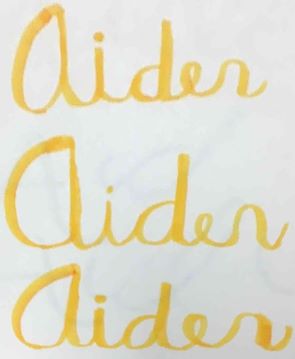 Aiden
Aiden
Aiden